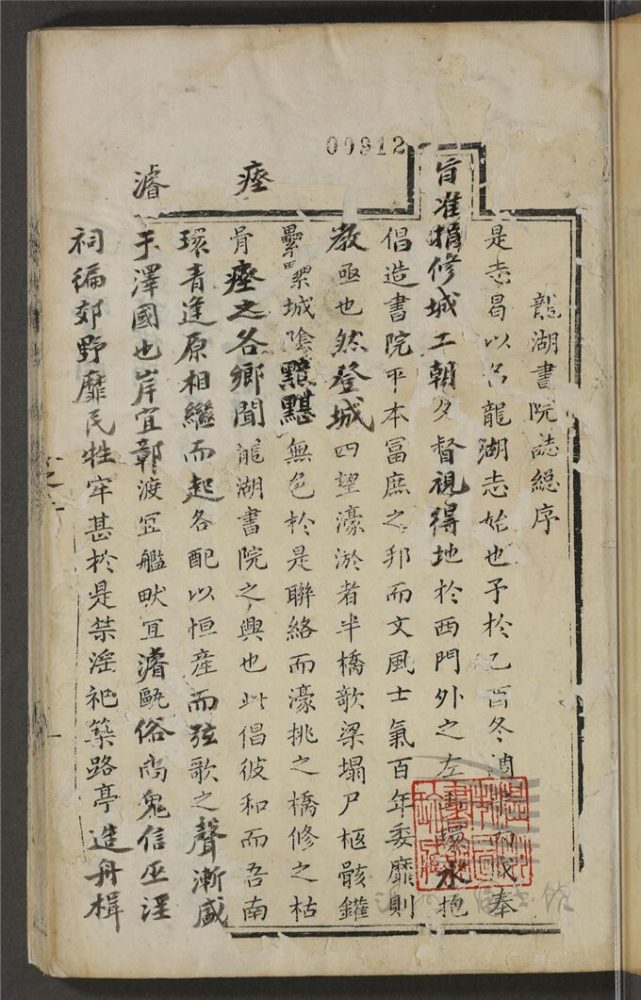 00912
龍湖書院誌總序
是志曷以名龍湖志始也予於乙酉冬 奉
旨准捐修城工朝夕督視得地於西門外之左 環水抱
倡造書院平本富庶之邦而文風士氣百年委靡則
教亟也然登城四望濠淤者半橋欹梁塌尸柩骸鑵
纍纍城陰黯黮無色於是聯絡而濠挑之橋修之枯
骨瘞之各鄉聞龍湖書院之興也此倡彼和而吾南
環青逢原相繼而起各配以恒產而弦歌之聲漸盛
乎澤國也岸宜鄣渡宜艦畎宜濬甌俗尚鬼信巫淫
祠徧郊野靡民牲牢甚於是禁淫祀築路亭造舟楫
瘞
濬